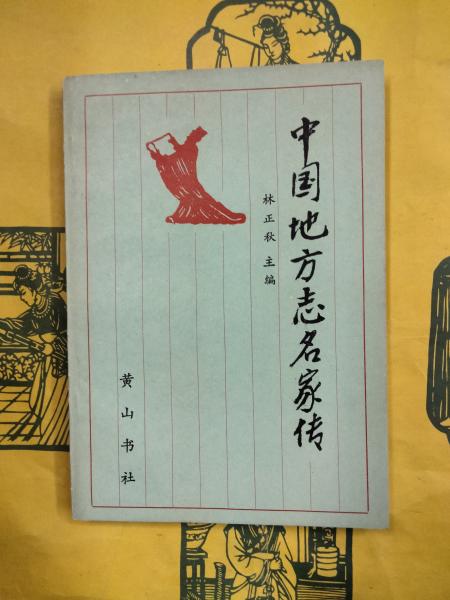 中国地方志名家传
林正秋 主编
黄山书社